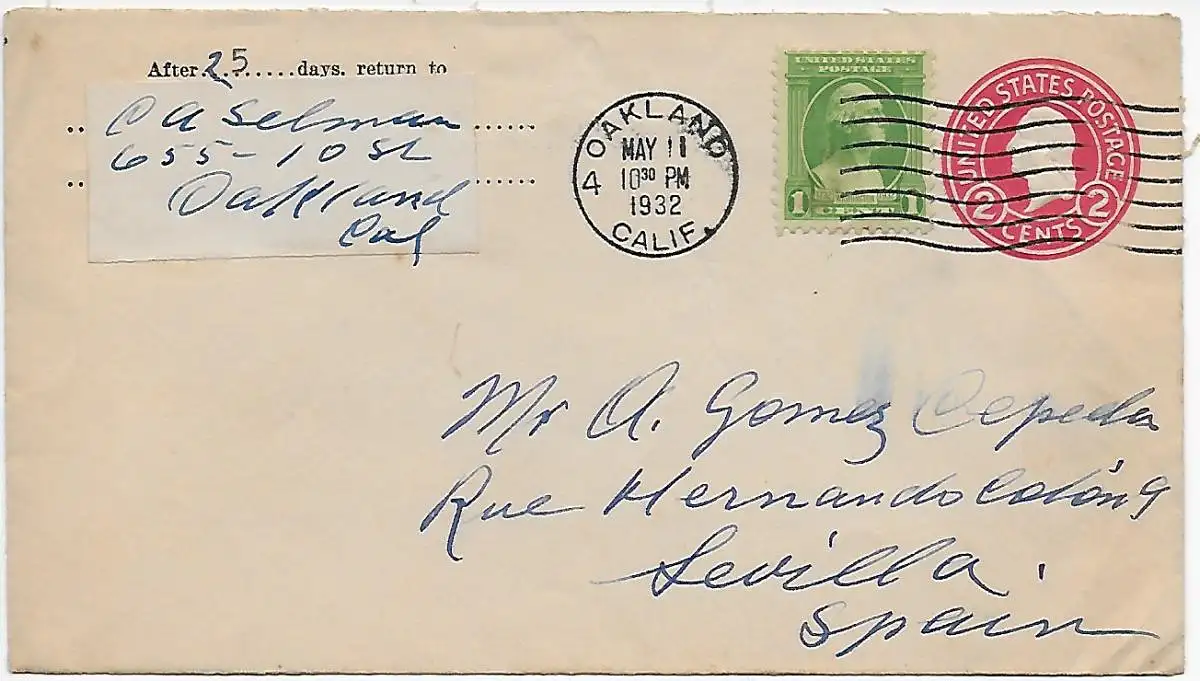 After 25 days, return to
C A Selman
655-10 St
Oakland
Cal
OAKLAND
CALIF.
4
MAY 11
10 30 PM
1932
UNITED STATES
POSTAGE
1 CENT 1
UNITED STATES POSTAGE
2 CENTS 2
Mr A. Gomez Cepeda
Rue Hernando Colón 9
Sevilla.
Spain